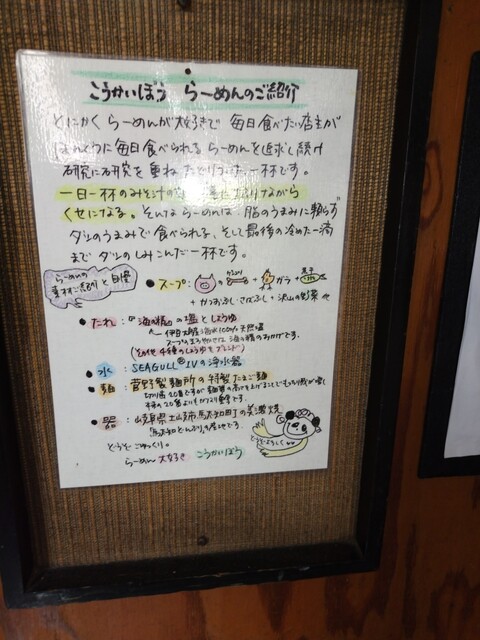 こうかいぼう らーめんのご紹介
とにかくらーめんが大好きで 毎日食べたい店主が
ほんとうに毎日食べられるらーめんを追求し続け
研究に研究を重ね たどりついた一杯です。
一日一杯のみそ汁の
くせになる。そんならーめんは 脂のうまみに頼らず
ダシのうまみで食べられる、そして最後の冷めた一滴
まで ダシのしみこんだ一杯です。
らーめんの
素材ご紹介と自慢
スープ: + げんこつ + ガラ + 煮干
+ かつおぶし・さばぶし + 沢山の野菜
たれ:『海の精』の塩としょうゆ
伊豆大島 海水100%天然塩
スープのまろやかさは 海の精のおかげです。
(その他4種のしょうゆをブレンド)
水: SEAGULL®IVの浄水器
麺: 菅野製麺所の特製たまご麺
切り歯20番ですが
器: 岐阜県土岐市駄知町の美濃焼
駄知どんぶりの産地です。
どうぞごゆっくり。
らーめん大好き こうかいぼう
どうぞよろしく